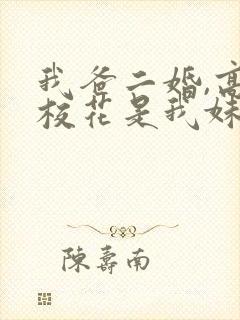 我爸二婚,高
校花是我妹
陳壽南